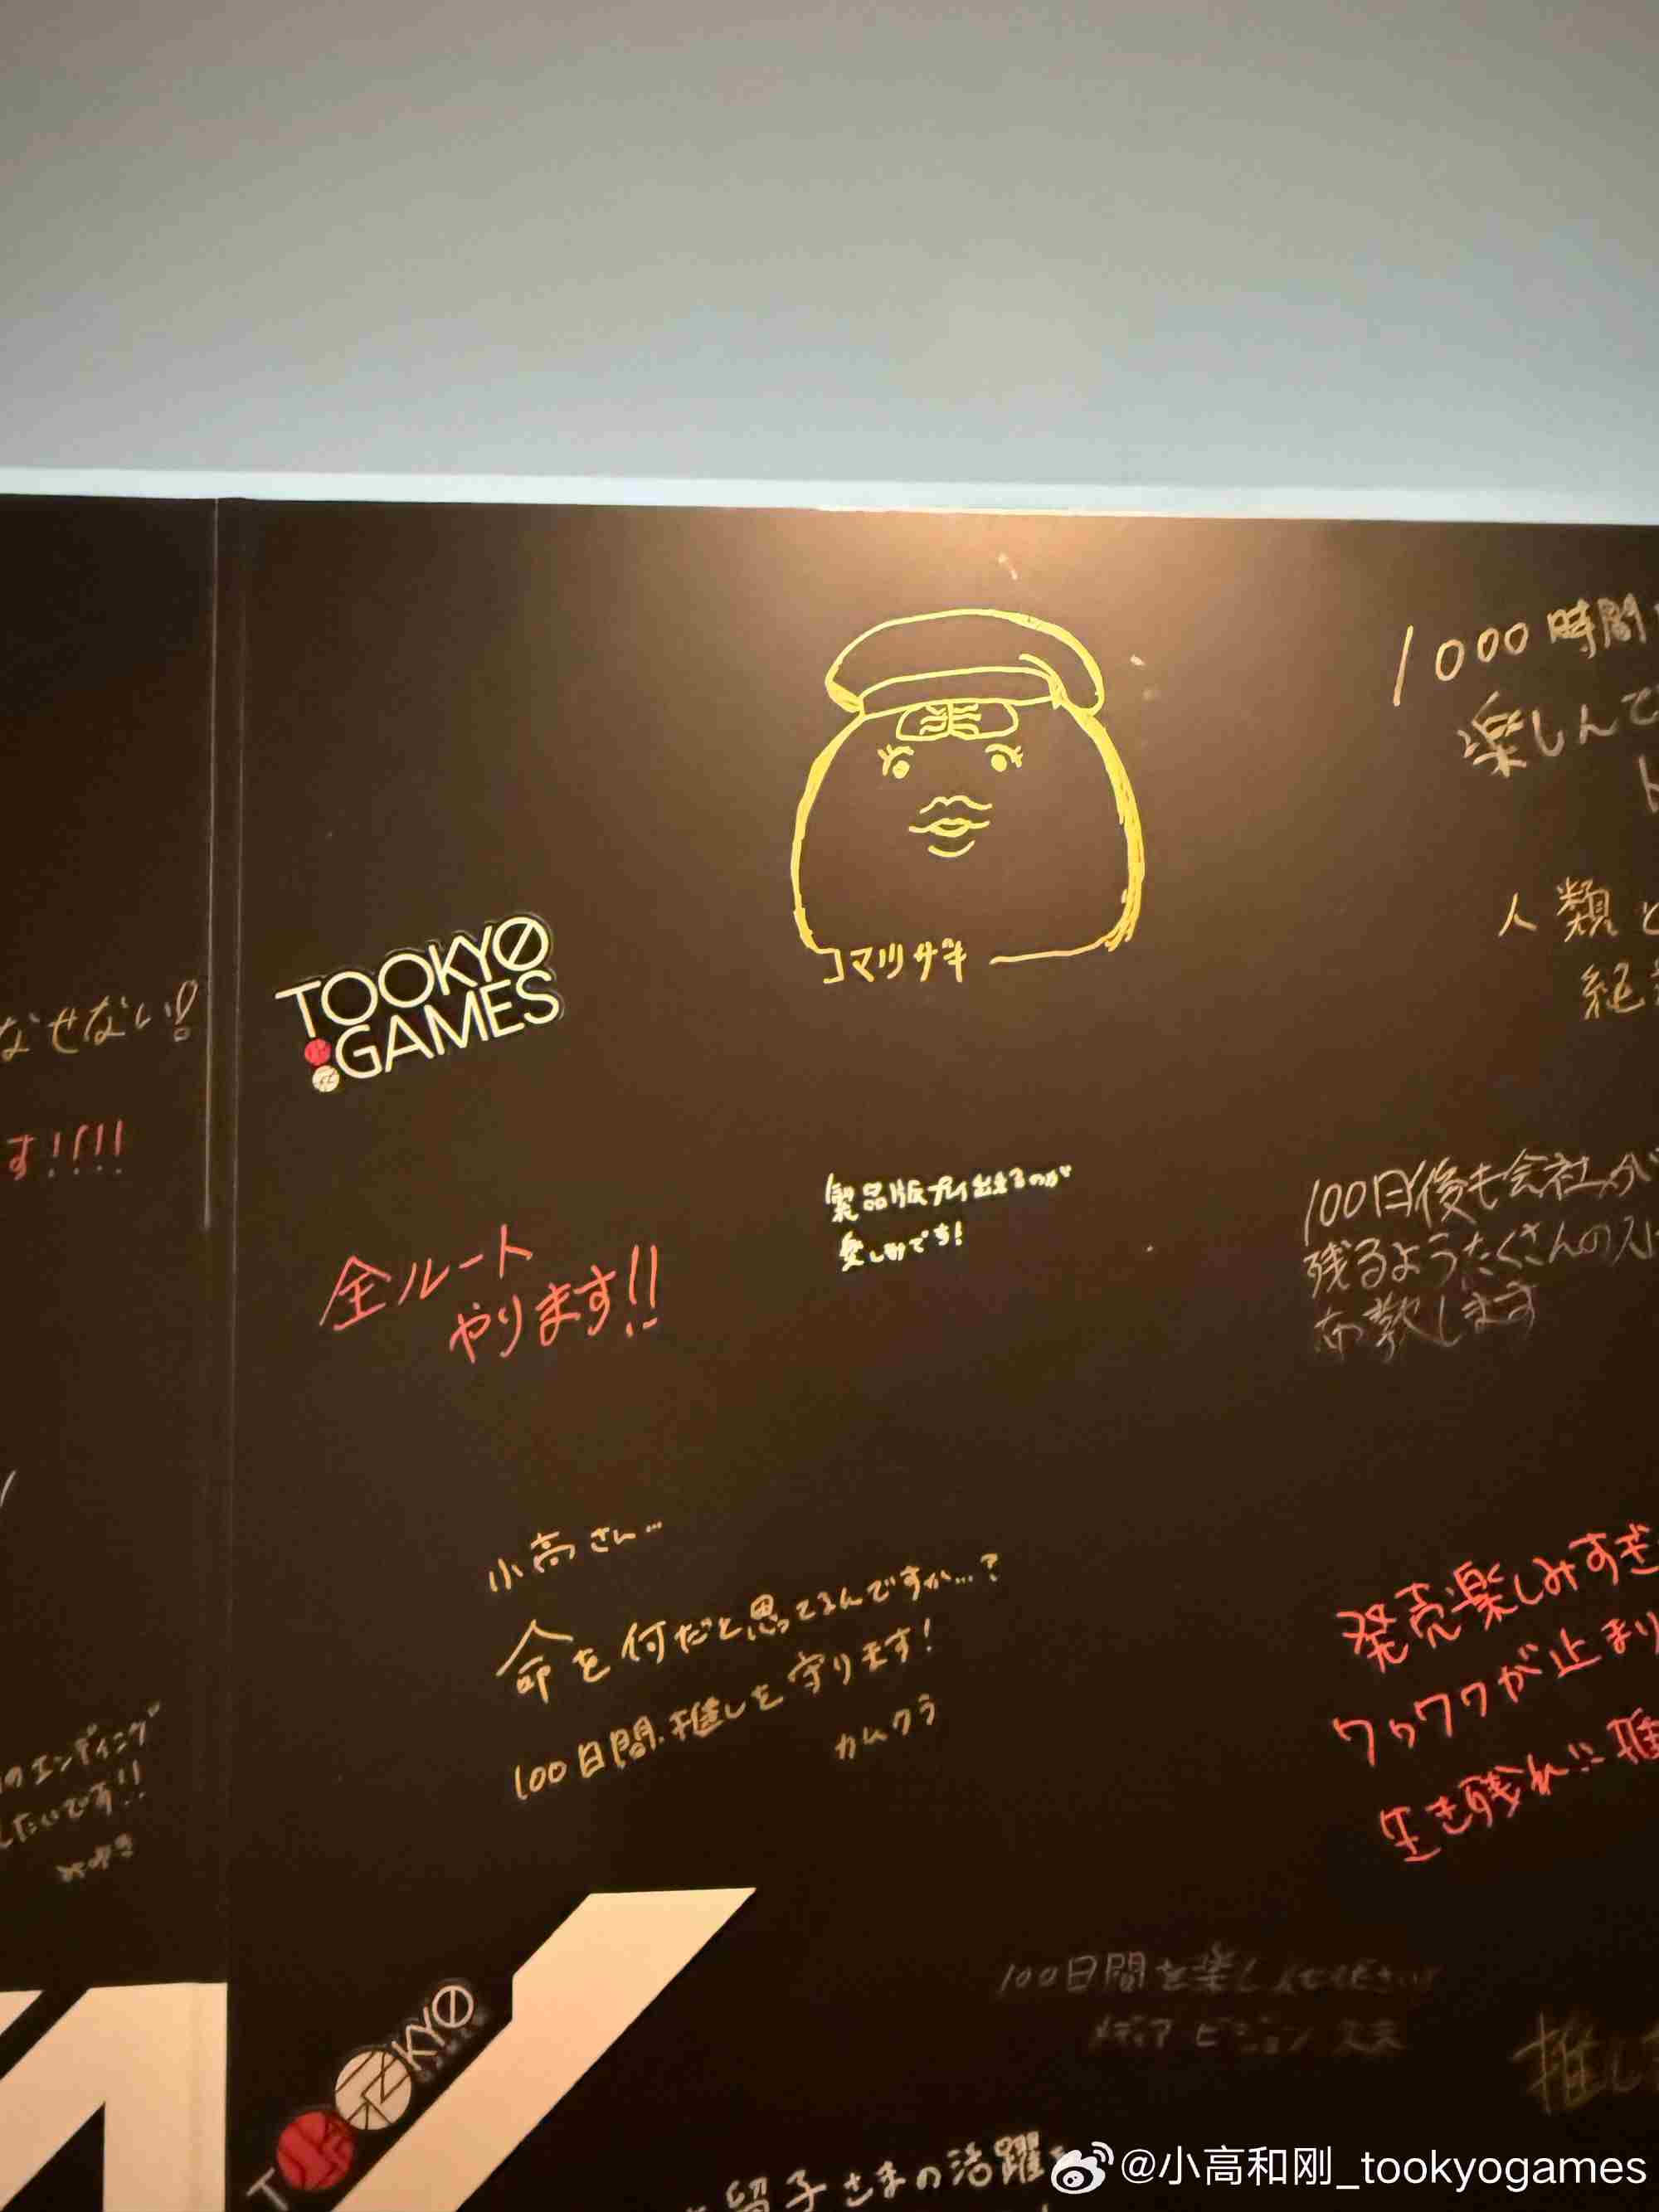 なせない!
す!!!!
のエンディング
したいです!!
TOOKYO
GAMES
コマツザキ
全ルート
やります!!
製品版プレイ出来るのが
楽しみです!
小高さん…
命を何だと思ってるんですか…?
100日間.推しを守ります!
カムクラ
1000時間
楽しんで
人類と
絶
100日後も会社が
残るようたくさんの
布教します
発売楽しみすぎ
ワクワクが止まり
生き残れ!!推
100日間を楽しんでください
メディアビジョン
推し
TOOKYO
留子さまの活躍
@小高和刚_tookyogames